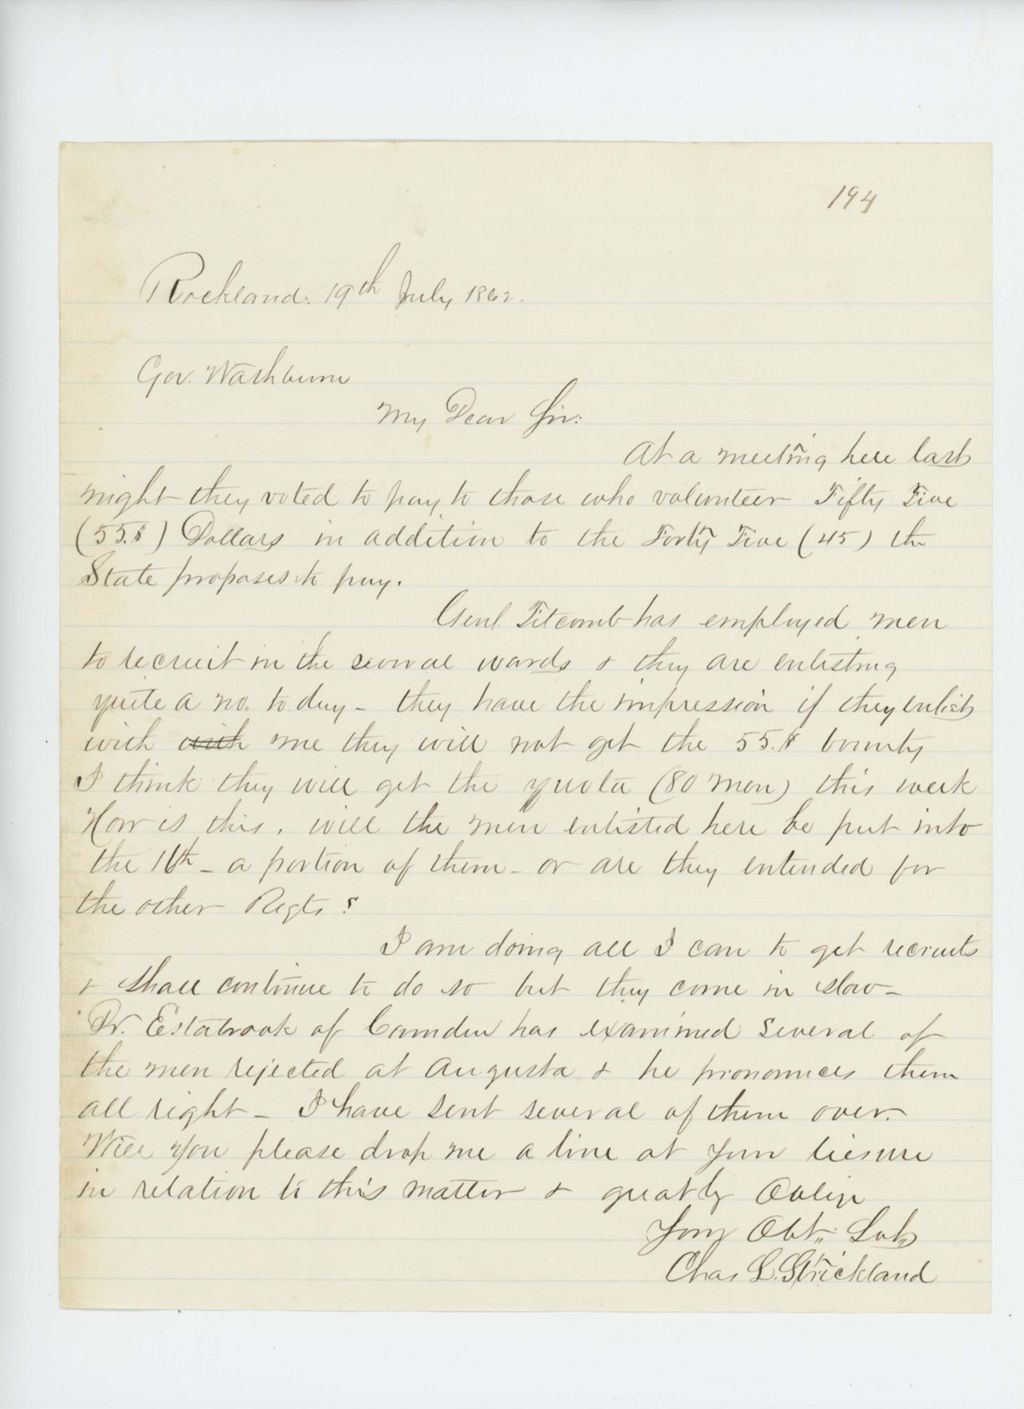 194
Rockland. 19th July 1862.
Gov. Washburn
My Dear Sir:
At a meeting here last
night they voted to pay to those who volunteer Fifty Five
(55.$) Dollars in addition to the Forty Five (45) the
State proposes to pay.
Genl Titcomb has employed men
to recruit in the several wards & they are enlisting
quite a no. to day - they have the impression if they enlist
with with me they will not get the 55.$ bounty
I think they will get the quota (80 men) this week
How is this, will the men enlisted here be put into
the 16th - a portion of them - or are they intended for
the other Regts?
I am doing all I can to get recruits
& shall continue to do so but they come in slow -
Dr. Estabrook of Camden has examined several of
the men rejected at Augusta & he pronounces them
all right - I have sent several of them over.
Will you please drop me a line at your liesure
in relation to this matter & greatly Oblige
Your Obt. Svt
Chas L. Strickland